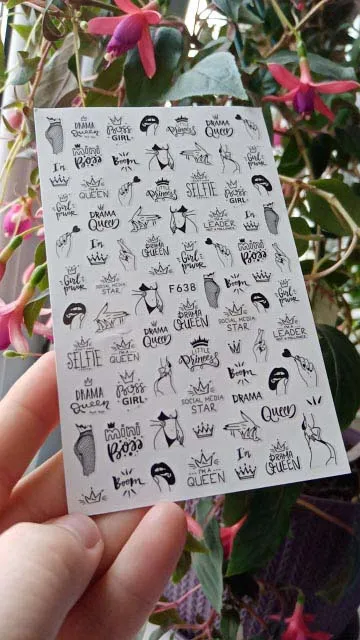 DRAMA
Queen
Boss
GIRL
Princess
DRAMA
Queen
mini
Boss
Boom
Girl
power
In
I'M A
QUEEN
Princess
SELFIE
Girl
power
DRAMA
QUEEN
LEADER
Girl
power
In
DRAMA
QUEEN
Girl
power
mini
Boss
Girl
power
SOCIAL MEDIA
STAR
F638
Boom
Girl
power
DRAMA
Queen
DRAMA
QUEEN
SOCIAL MEDIA
STAR
LEADER
SELFIE
I'M A
QUEEN
LITTLE
Princess
DRAMA
Queen
Boss
GIRL
SOCIAL MEDIA
STAR
Boom
DRAMA
Queen
mini
Boss
Boom
I'M A
QUEEN
In
DRAMA
QUEEN